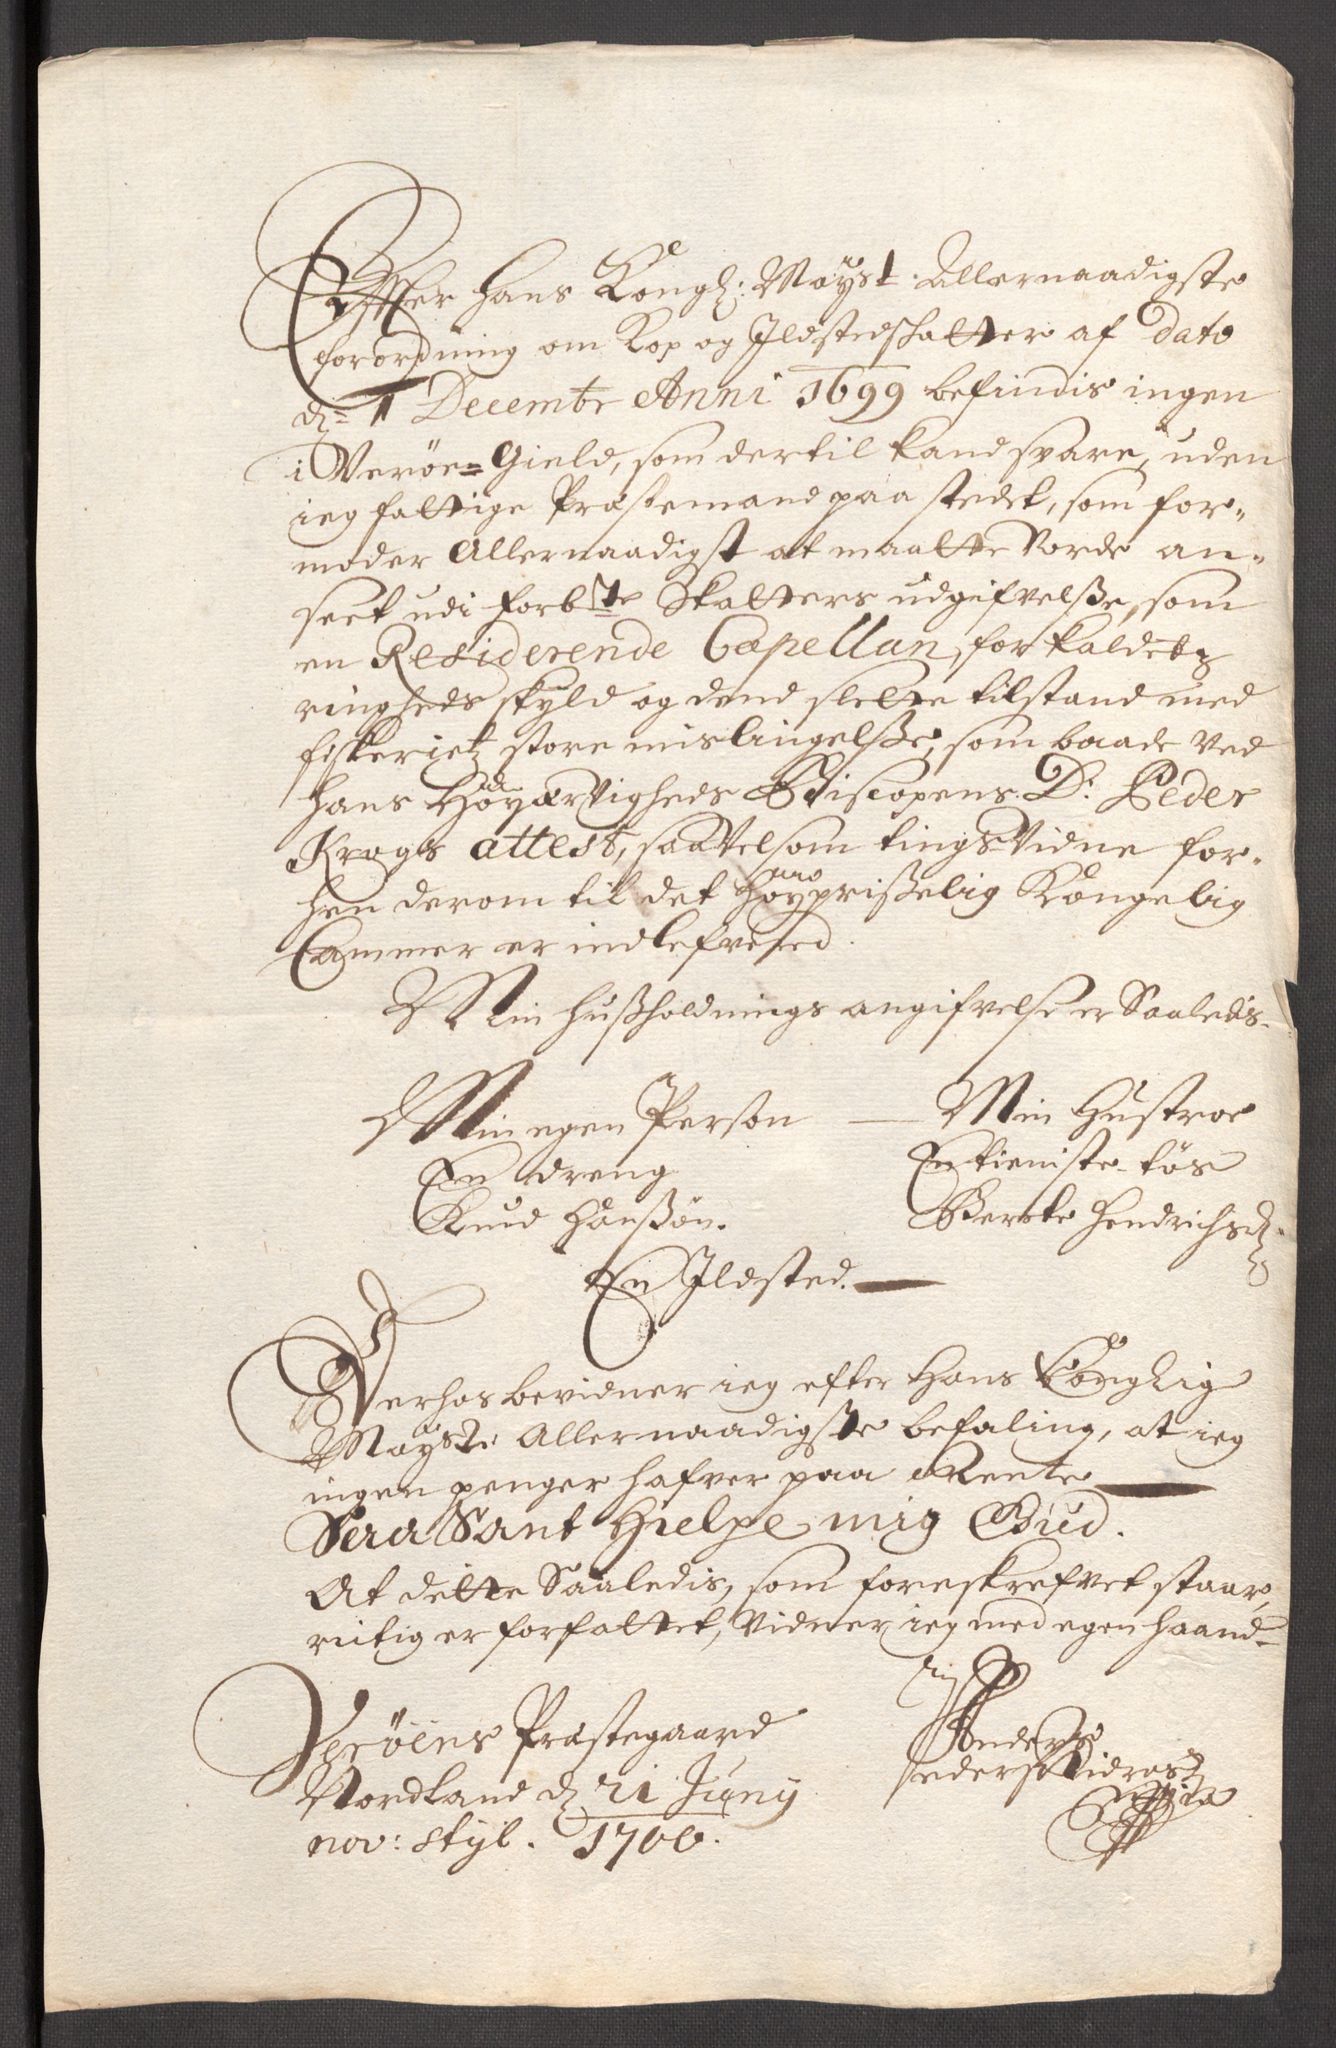 Effter Hans Kongl: Mayst: Allernaadigste
forordning om Kop og Ildstedschatter af dato
d: 1 Decembr Anni 1699 befindis ingen
i Verøe=Gield, som dertil kand svare, uden
ieg fattige Præstemand paa stedet, som for-
moder Allernaadigst at maatte vorde an-
seet udi forbte Skatters udgifvelsse, som
en Residerende Capellan, for kaldetz
ringheds skyld og dend slette tilstand med
fiskerietz store mislingelsse, som baade ved
Hans Höyærvigheds Biscopens Dr: Peder
Krogs attest, saavelsom tingsvidne for-
hen derom til det Höyprisselig Kongelig
Cammer er indlefvered.
Min Hussholdnings angifvelse er Saaledis.
Min egen Person — Min Hustroe
En dreng En tieniste-tös
Knud Hanssön. Berete Hendrichsd:
En Ildsted.
Derhos bevidner ieg efter Hans Konglig
Mayst: Allernaadigste befaling, at ieg
ingen penger hafver paa Rente
Saa Sant Hielpe mig Gud.
At dette Saaledis, som foreskrefvet staar,
rictig er forfattet, vidner ieg med egen haand-
Verøens Præstegaard Anders
Nordland d 21 Juny Pederss Nidros
nov: styl. 1700.